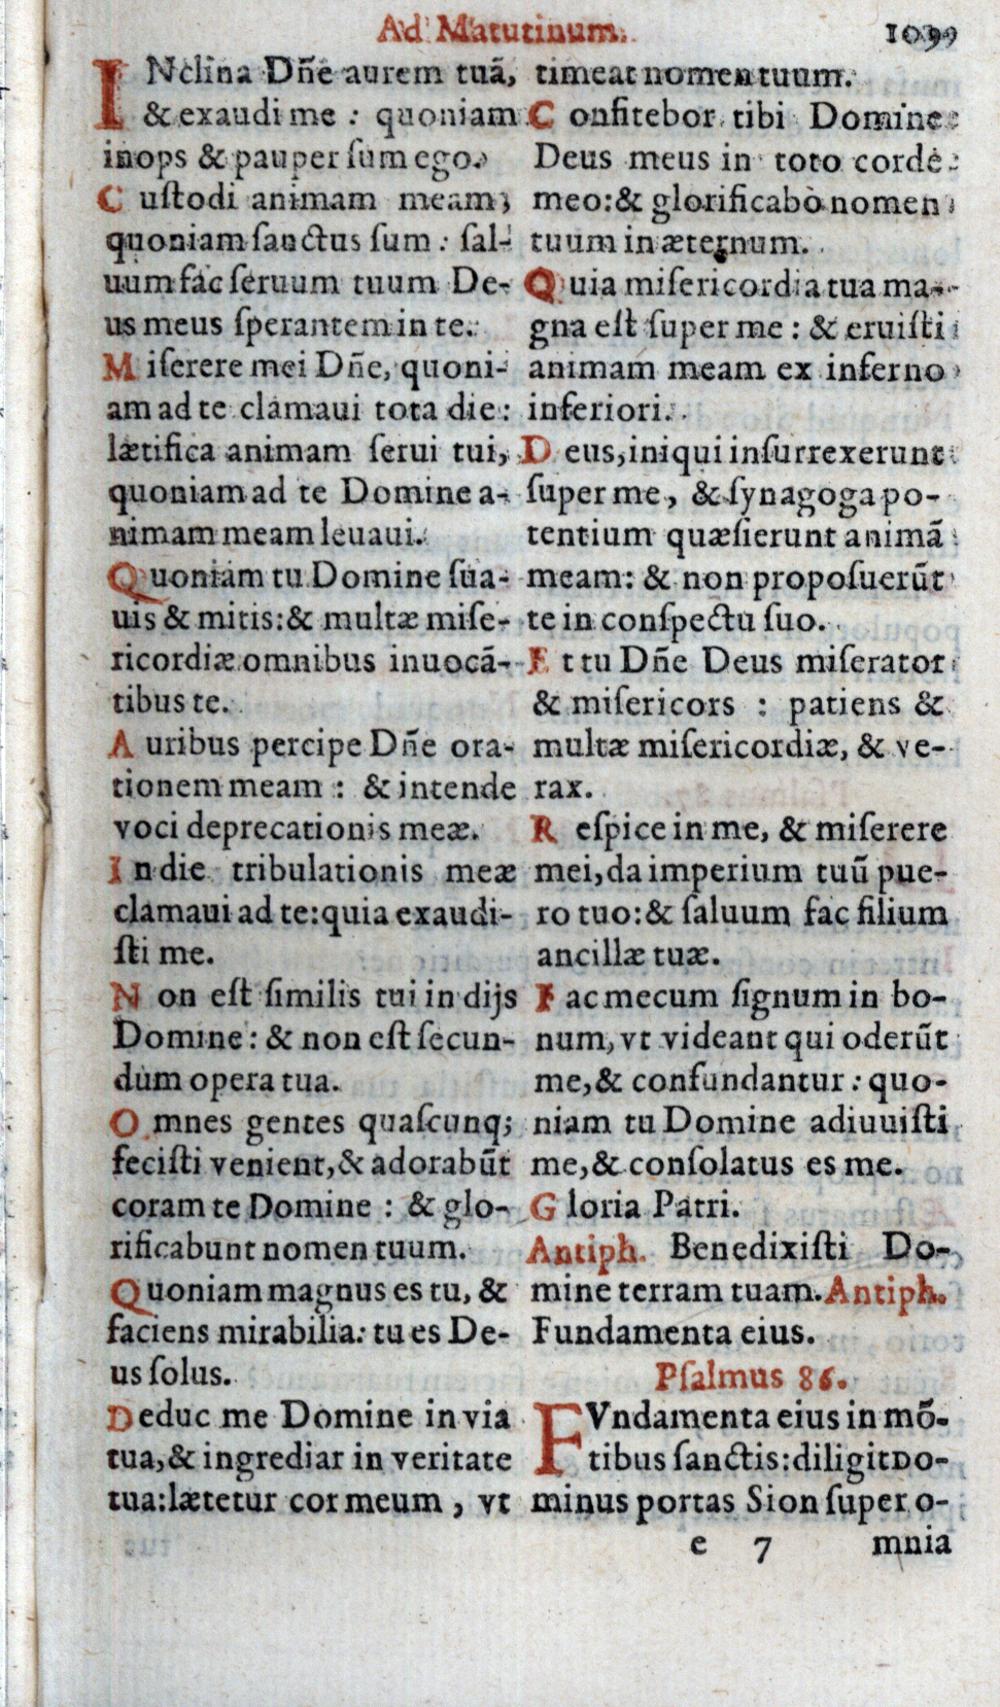 Ad Matutinum. 1099
INclina Dñe aurem tuã,
& exaudi me : quoniam
inops & pauper ſum ego.
Cuſtodi animam meam,
quoniam ſanctus ſum : ſal-
uum fac ſeruum tuum De-
us meus ſperantem in te.
Miſerere mei Dñe, quoni-
am ad te clamaui tota die:
lætifica animam ſerui tui,
quoniam ad te Domine a-
nimam meam leuaui.
Quoniam tu Domine ſua-
uis & mitis: & multæ miſe-
ricordiæ omnibus inuocã-
tibus te.
Auribus percipe Dñe ora-
tionem meam : & intende
voci deprecationis meæ.
In die tribulationis meæ
clamaui ad te: quia exaudi-
ſti me.
Non eſt ſimilis tui in dijs
Domine : & non eſt ſecun-
dum opera tua.
Omnes gentes quaſcunq;
feciſti venient, & adorabũt
coram te Domine : & glo-
rificabunt nomen tuum.
Quoniam magnus es tu, &
faciens mirabilia: tu es De-
us ſolus.
Deduc me Domine in via
tua, & ingrediar in veritate
tua: lætetur cor meum , vt
timeat nomen tuum.
Confitebor tibi Domine
Deus meus in toto corde
meo: & glorificabo nomen
tuum in æternum.
Quia miſericordia tua ma-
gna eſt ſuper me : & eruiſti
animam meam ex inferno
inferiori.
Deus, iniqui inſurrexerunt
ſuper me, & ſynagoga po-
tentium quæſierunt animã
meam: & non propoſuerũt
te in conſpectu ſuo.
Et tu Dñe Deus miſerator
& miſericors : patiens &
multæ miſericordiæ, & ve-
rax.
Reſpice in me, & miſerere
mei, da imperium tuũ pue-
ro tuo: & ſaluum fac filium
ancillæ tuæ.
Fac mecum ſignum in bo-
num, vt videant qui oderũt
me, & confundantur : quo-
niam tu Domine adiuuiſti
me, & conſolatus es me.
Gloria Patri.
Antiph. Benedixiſti Do-
mine terram tuam. Antiph.
Fundamenta eius.
Pſalmus 86.
FVndamenta eius in mõ-
tibus ſanctis: diligit Do-
minus portas Sion ſuper o-
e 7 mnia